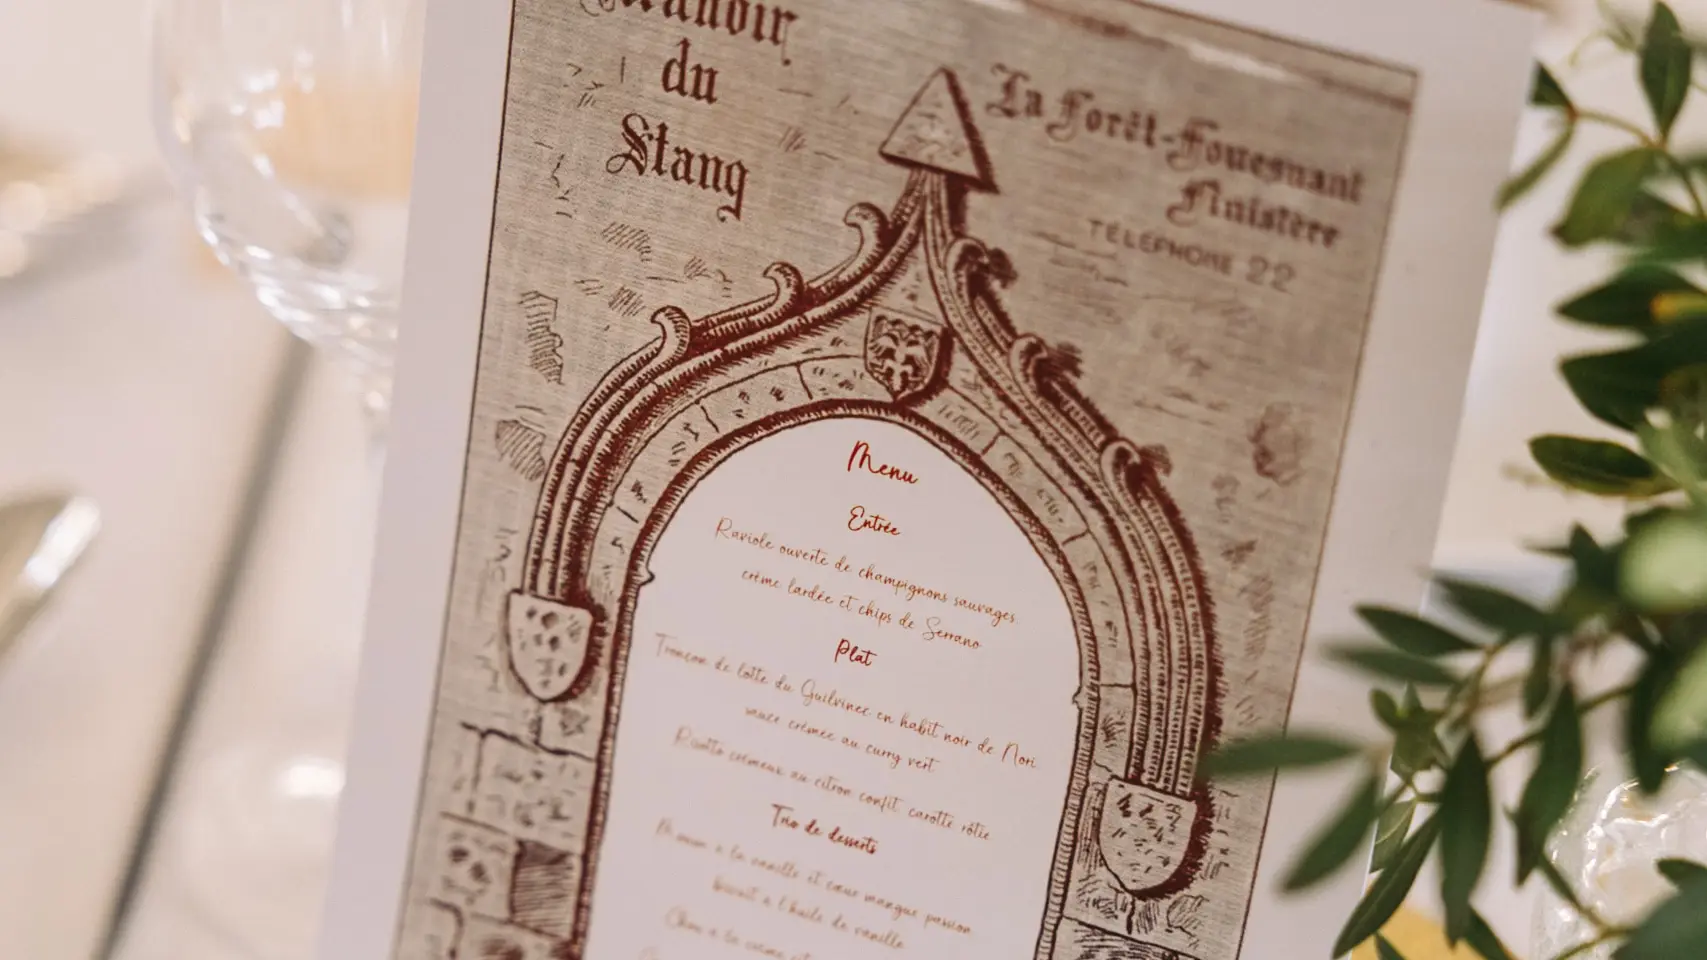 Manoir
du
Stang
La Forêt-Fouesnant
Finistère
TÉLÉPHONE 22
Menu
Entrée
Raviole ouverte de champignons sauvages,
crème lardée et chips de Serrano
Plat
Tronçon de lotte du Guilvinec en habit noir de Nori
sauce crémée au curry vert
Risotto crémeux au citron confit, carotte rôtie
Trio de desserts
à la vanille et cœur mangue passion
biscuit à l'huile de vanille
Chou à la crème